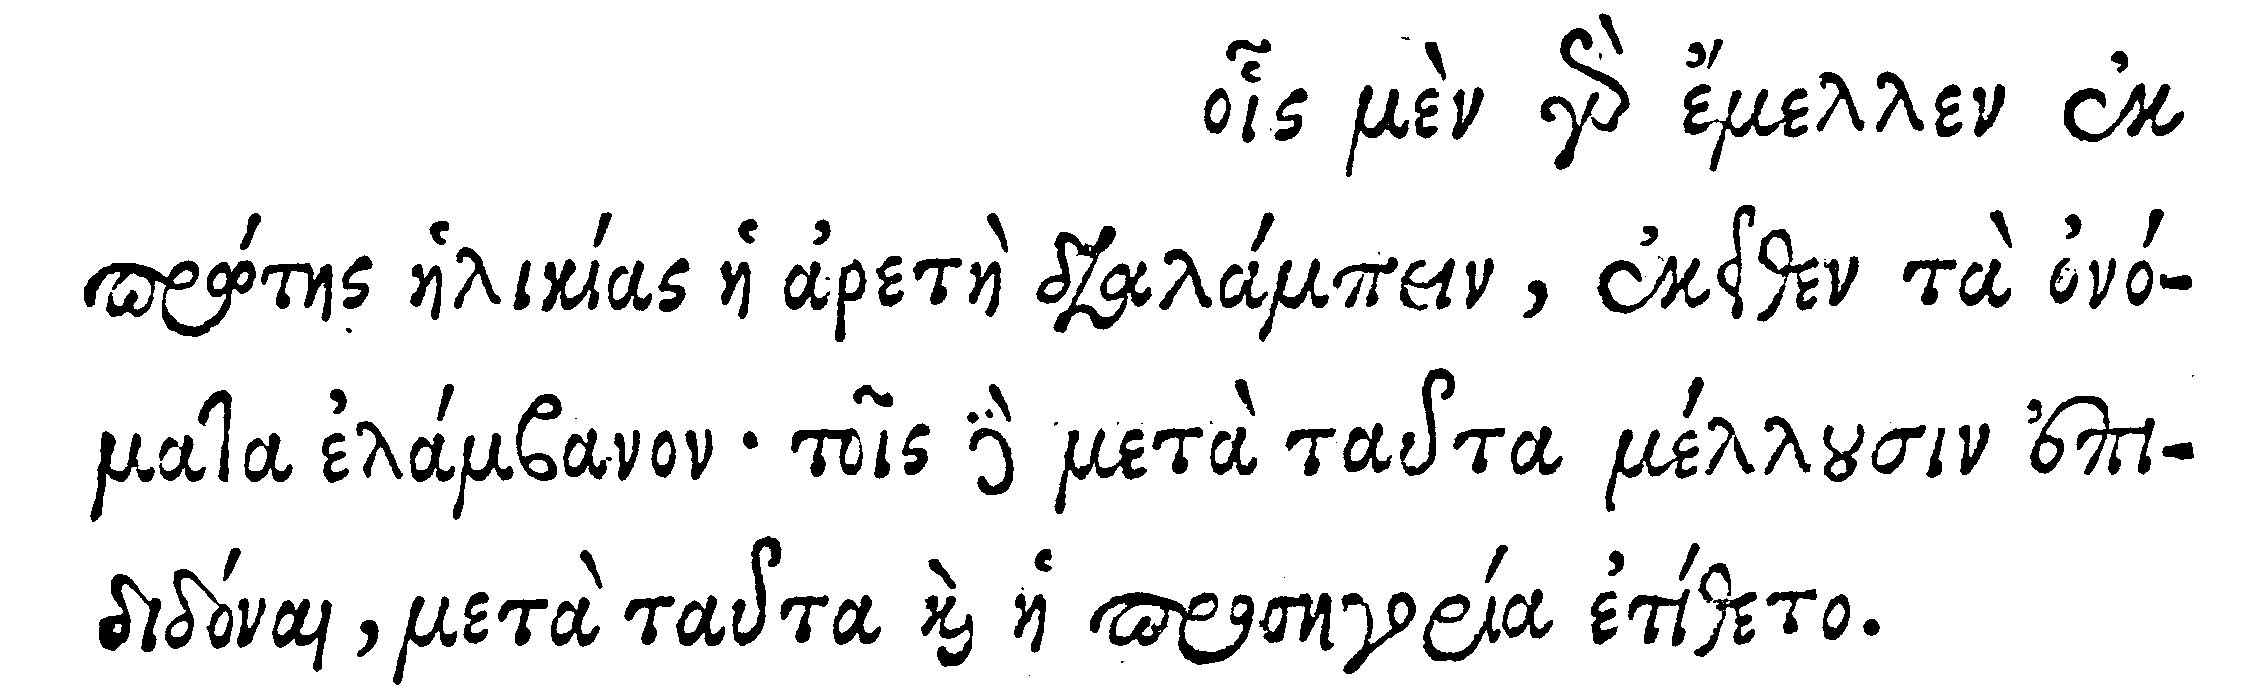 οἷς μὲν γὰρ ἔμελλεν ἐκ
πρώτης ἡλικίας ἡ ἀρετὴ διαλάμπειν, ἐκεῖθεν τὰ ὀνό-
ματα ἐλάμβανον· τοῖς δὲ μετὰ ταῦτα μέλλουσιν ἐπι-
διδόναι, μετὰ ταῦτα καὶ ἡ προσηγορία ἐτίθετο.